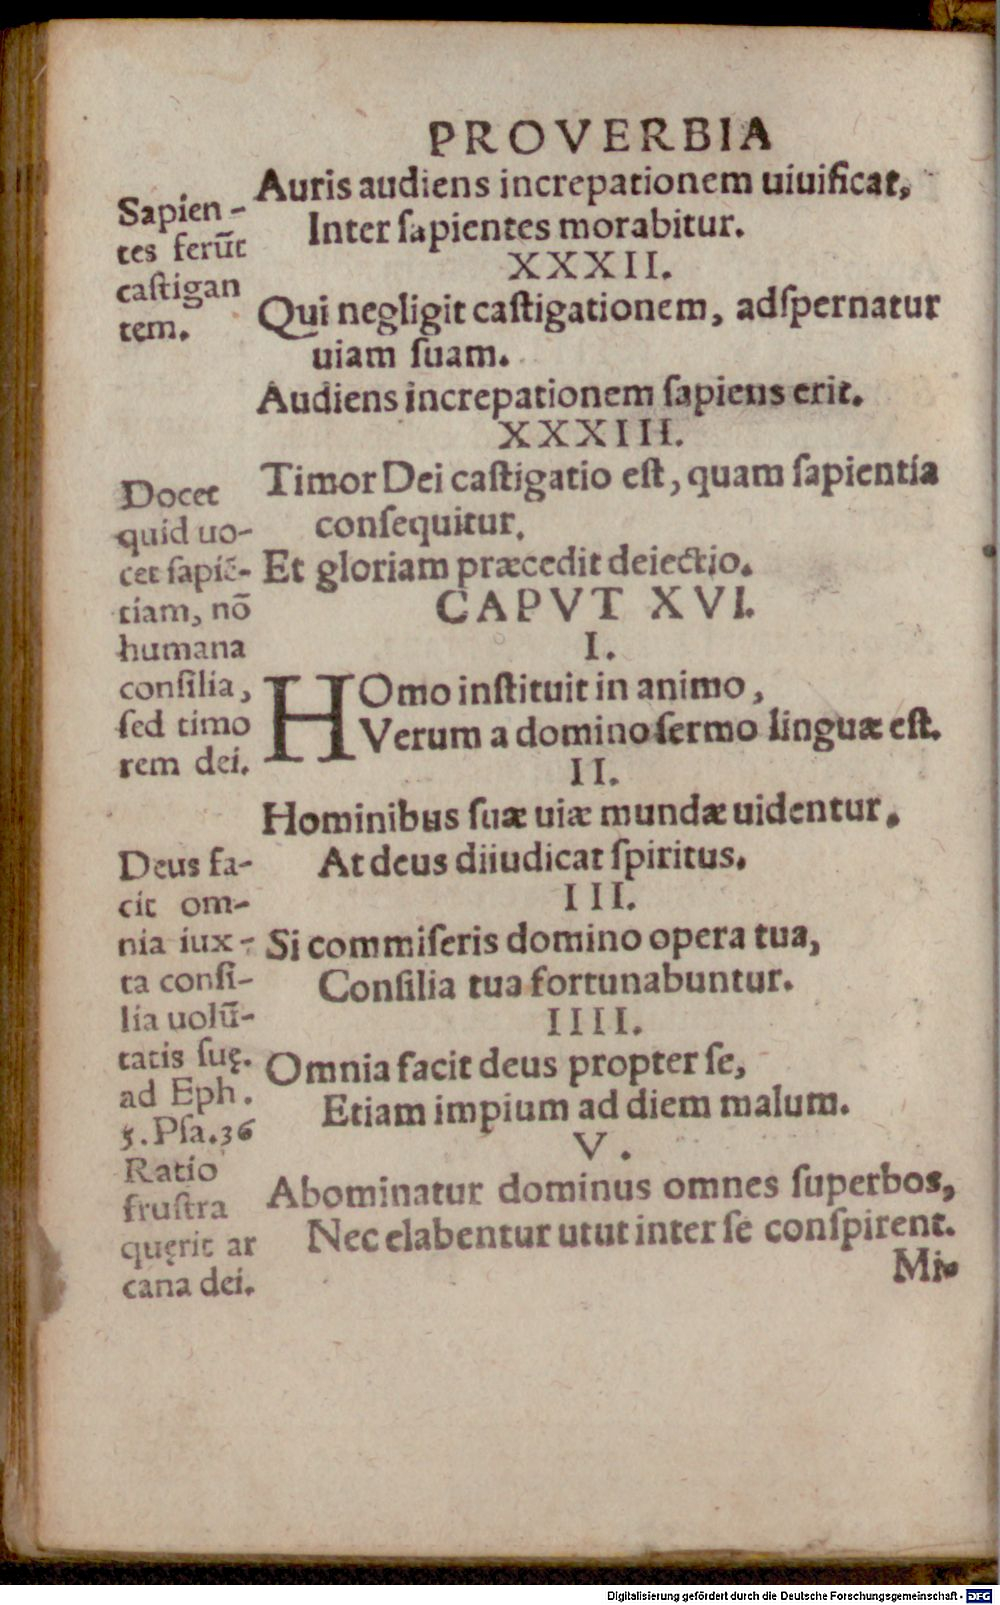 PROVERBIA
Auris audiens increpationem uiuificat,
Inter ſapientes morabitur.
XXXII.
Qui negligit caſtigationem, adſpernatur
uiam ſuam.
Audiens increpationem ſapiens erit.
XXXIII.
Timor Dei caſtigatio eſt, quam ſapientia
conſequitur.
Et gloriam præcedit deiectio.
Sapien-
tes ferūt
caſtigan
tem.
Docet
quid uo-
cet ſapiē-
tiam, nō
humana
conſilia,
ſed timo
rem dei.
CAPVT XVI.
I.
HOmo inſtituit in animo,
Verum a domino ſermo linguæ eſt.
II.
Hominibus ſuæ uiæ mundæ uidentur.
At deus diiudicat ſpiritus.
III.
Si commiſeris domino opera tua,
Conſilia tua fortunabuntur.
IIII.
Omnia facit deus propter ſe,
Etiam impium ad diem malum.
V.
Abominatur dominus omnes ſuperbos,
Nec elabentur utut inter ſe conſpirent.
Deus fa-
cit om-
nia iux-
ta conſi-
lia uolū-
tatis ſuę.
ad Eph.
5. Pſa. 36
Ratio
fruſtra
quęrit ar
cana dei.
Mi-
Digitalisierung gefördert durch die Deutsche Forschungsgemeinschaft - DFG